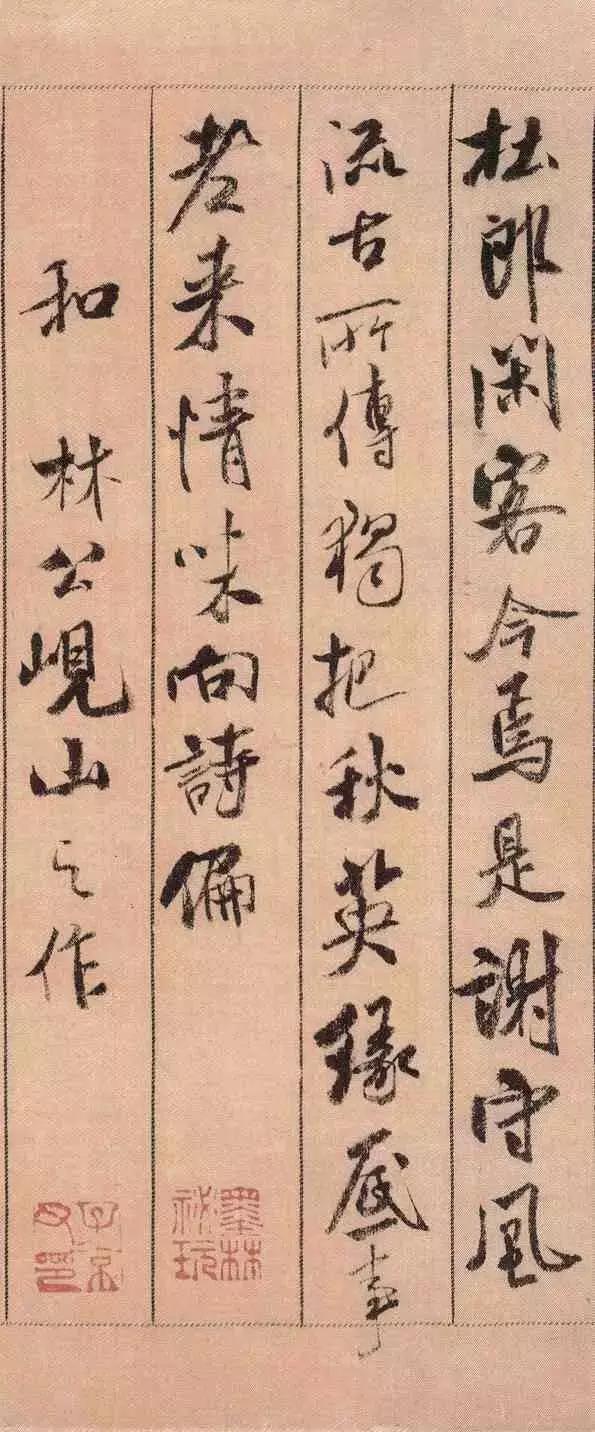 杜郎閑客今焉是謝守風
流古所傳獨把秋英緣底事
老来情味向詩偏
墨林祕玩
和 林公峴山之作
子京父印